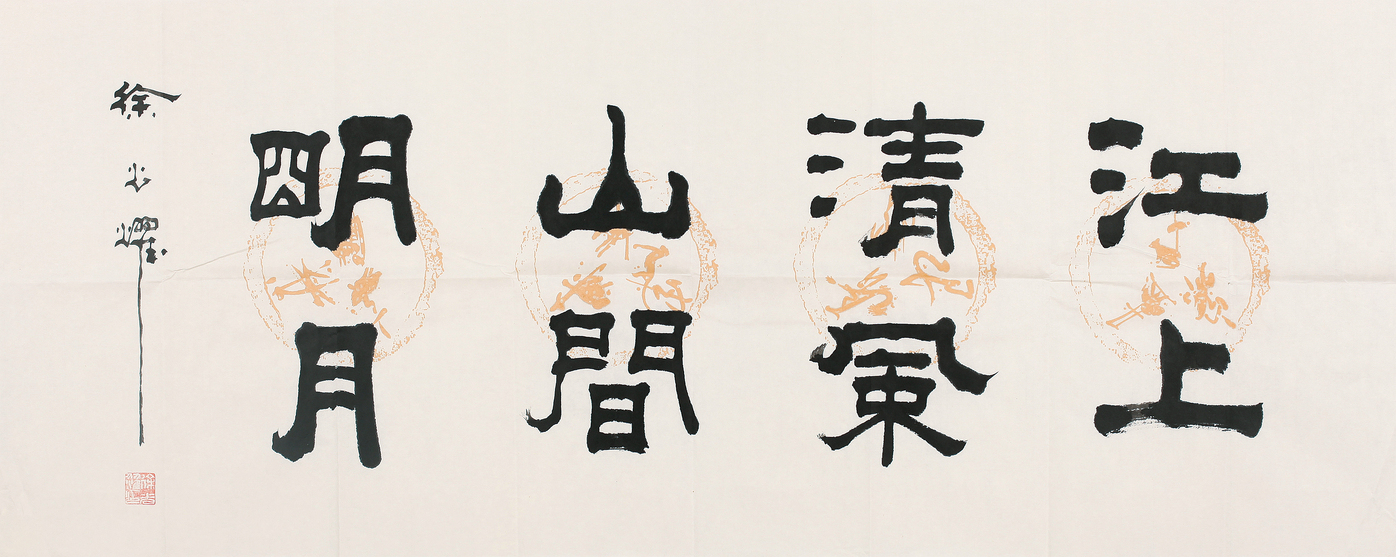 江上
清風
山間
明月
徐小燿